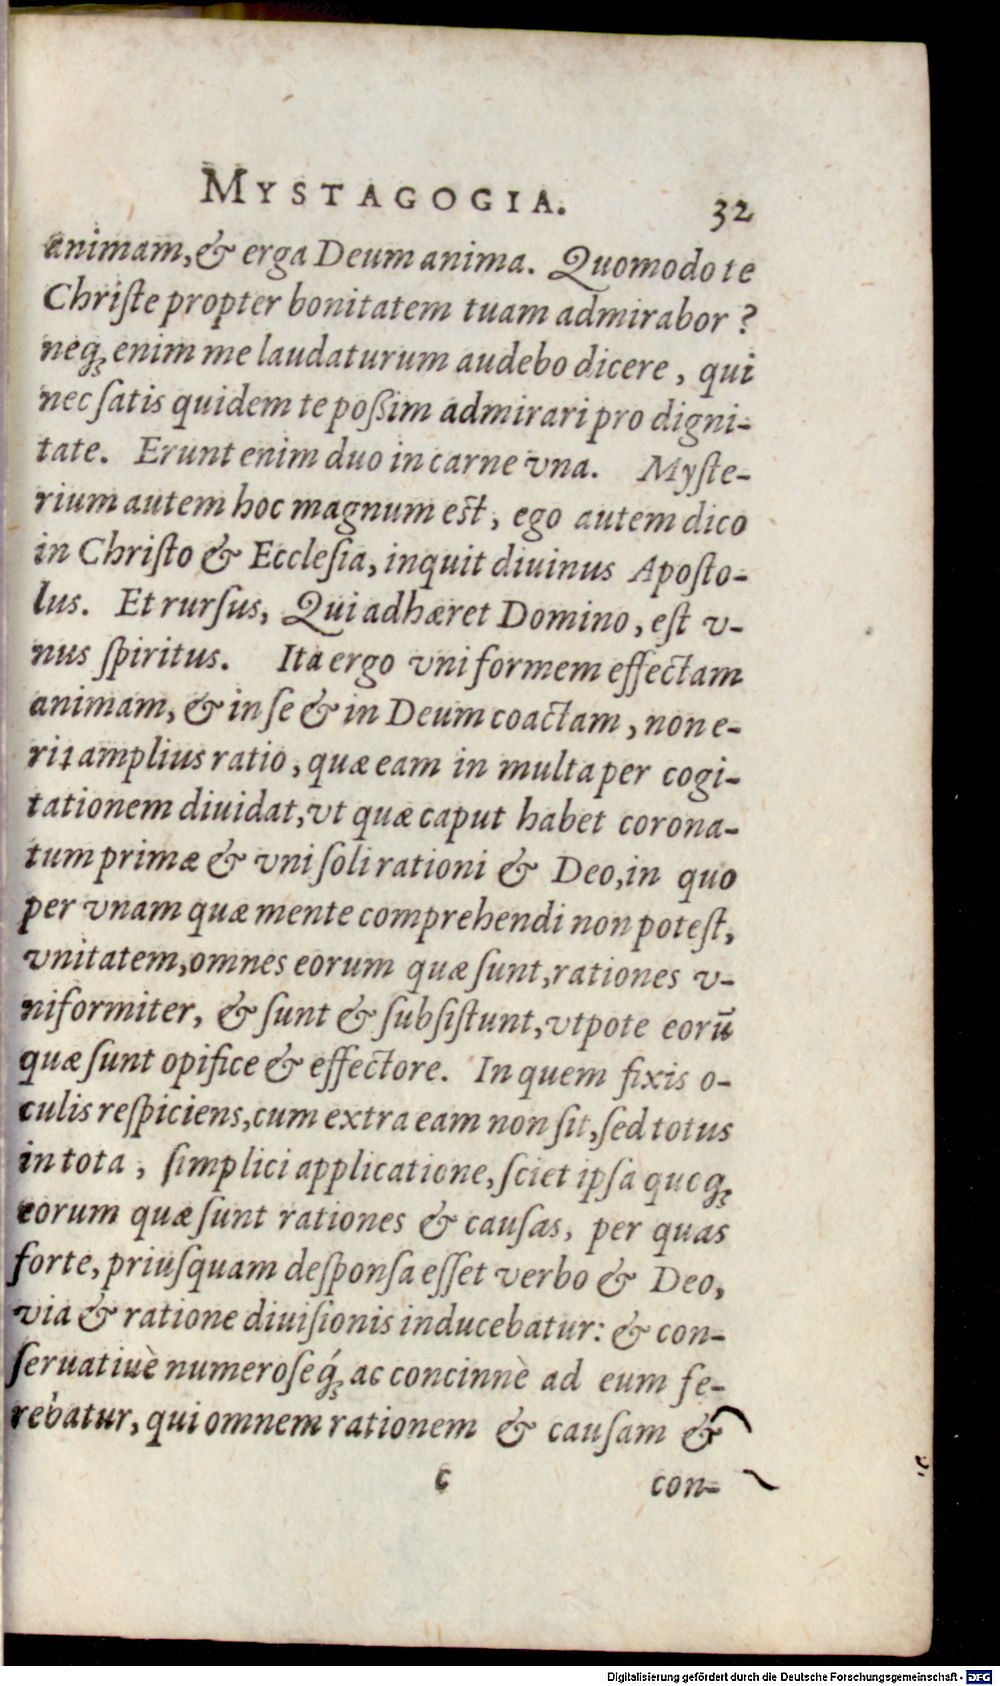 MYSTAGOGIA. 32
animam, & erga Deum anima. Quomodo te
Christe propter bonitatem tuam admirabor ?
neqꝫ enim me laudaturum audebo dicere, qui
nec satis quidem te poßim admirari pro digni-
tate. Erunt enim duo in carne vna. Myste-
rium autem hoc magnum est, ego autem dico
in Christo & Ecclesia, inquit diuinus Aposto-
lus. Et rursus, Qui adhæret Domino, est v-
nus spiritus. Ita ergo vniformem effectam
animam, & in se & in Deum coactam, non e-
rit amplius ratio, quæ eam in multa per cogi-
tationem diuidat, vt quæ caput habet corona-
tum primæ & vni soli rationi & Deo, in quo
per vnam quæ mente comprehendi non potest,
vnitatem, omnes eorum quæ sunt, rationes v-
niformiter, & sunt & subsistunt, vtpote eorū
quæ sunt opifice & effectore. In quem fixis o-
culis respiciens, cum extra eam non sit, sed totus
in tota, simplici applicatione, sciet ipsa queqꝫ
eorum quæ sunt rationes & causas, per quas
forte, priusquam desponsa esset verbo & Deo,
via & ratione diuisionis inducebatur: & con-
seruatiuè numeroseq́ꝫ ac concinnè ad eum fe-
rebatur, qui omnem rationem & causam &
c con-
Digitalisierung gefördert durch die Deutsche Forschungsgemeinschaft - DFG